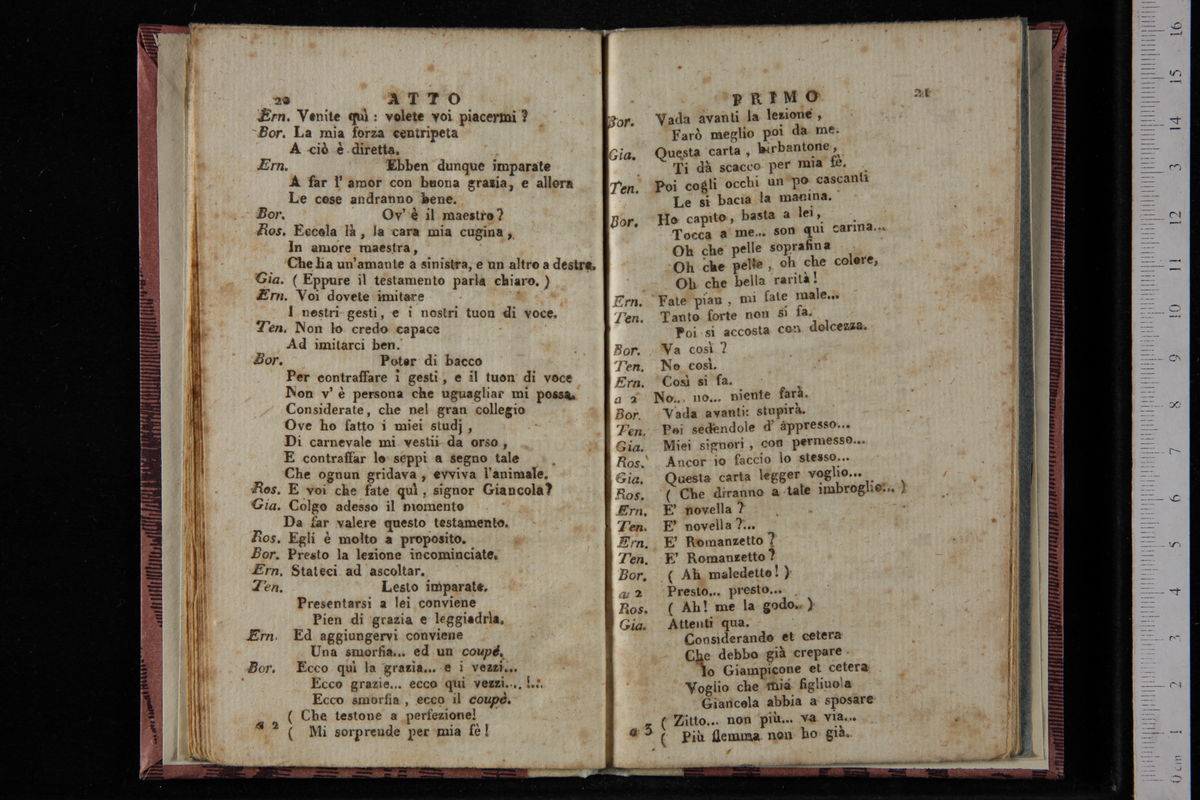 20 ATTO
Ern. Venite quì : volete voi piacermi ?
Bor. La mia forza centripeta
A ciò è diretta.
Ern. Ebben dunque imparate
A far l' amor con buona grazia, e allora
Le cose andranno bene.
Bor. Ov' è il maestro ?
Ros. Eccola là , la cara mia cugina ,
In amore maestra ,
Che ha un'amante a sinistra, e un altro a destra.
Gia. ( Eppure il testamento parla chiaro. )
Ern. Voi dovete imitare
I nostri gesti, e i nostri tuon di voce.
Ten. Non lo credo capace
Ad imitarci ben.
Bor. Poter di bacco
Per contraffare i gesti , e il tuon di voce
Non v' è persona che uguagliar mi possa.
Considerate, che nel gran collegio
Ove ho fatto i miei studj ,
Di carnevale mi vestii da orso ,
E contraffar lo seppi a segno tale
Che ognun gridava , evviva l'animale.
Ros. E voi che fate quì , signor Giancola?
Gia. Colgo adesso il momento
Da far valere questo testamento.
Ros. Egli è molto a proposito.
Bor. Presto la lezione incominciate.
Ern. Stateci ad ascoltar.
Ten. Lesto imparate.
Presentarsi a lei conviene
Pien di grazia e leggiadrìa.
Ern. Ed aggiungervi conviene
Una smorfia... ed un coupé.
Bor. Ecco quì la grazia... e i vezzi...
Ecco grazie... ecco qui vezzi... !...
Ecco smorfia , ecco il coupè.
( Che testone a perfezione!
a 2
( Mi sorprende per mia fè !
PRIMO 21
Bor. Vada avanti la lezione ,
Farò meglio poi da me.
Gia. Questa carta , birbantone ,
Ti dà scacco per mia fè.
Ten. Poi cogli occhi un po cascanti
Le si bacia la manina.
Bor. Ho capito , basta a lei ,
Tocca a me... son qui carina...
Oh che pelle soprafina
Oh che pelle , oh che colore,
Oh che bella rarità !
Ern. Fate pian , mi fate male...
Ten. Tanto forte non si fa.
Poi si accosta con dolcezza.
Bor. Va così ?
Ten. No così.
Ern. Così si fa.
a 2 No... no... niente farà.
Bor. Vada avanti: stupirà.
Ten. Poi sedendole d' appresso...
Gia. Miei signori , con permesso...
Ros. Ancor io faccio lo stesso...
Gia. Questa carta legger voglio...
Ros. ( Che diranno a tale imbroglio... )
Ern. E' novella ?
Ten. E' novella ?...
Ern. E' Romanzetto ?
Ten. E' Romanzetto ?
Bor. ( Ah maledetto ! )
a 2 Presto... presto...
Ros. ( Ah! me la godo. )
Gia. Attenti qua.
Considerando et cetera
Che debbo già crepare
Io Giampicone et cetera
Voglio che mia figliuola
Giancola abbia a sposare
( Zitto... non più... va via...
a 3
( Più flemma non ho già.
0 cm 1 2 3 4 5 6 7 8 9 10 11 12 3 14 15 16